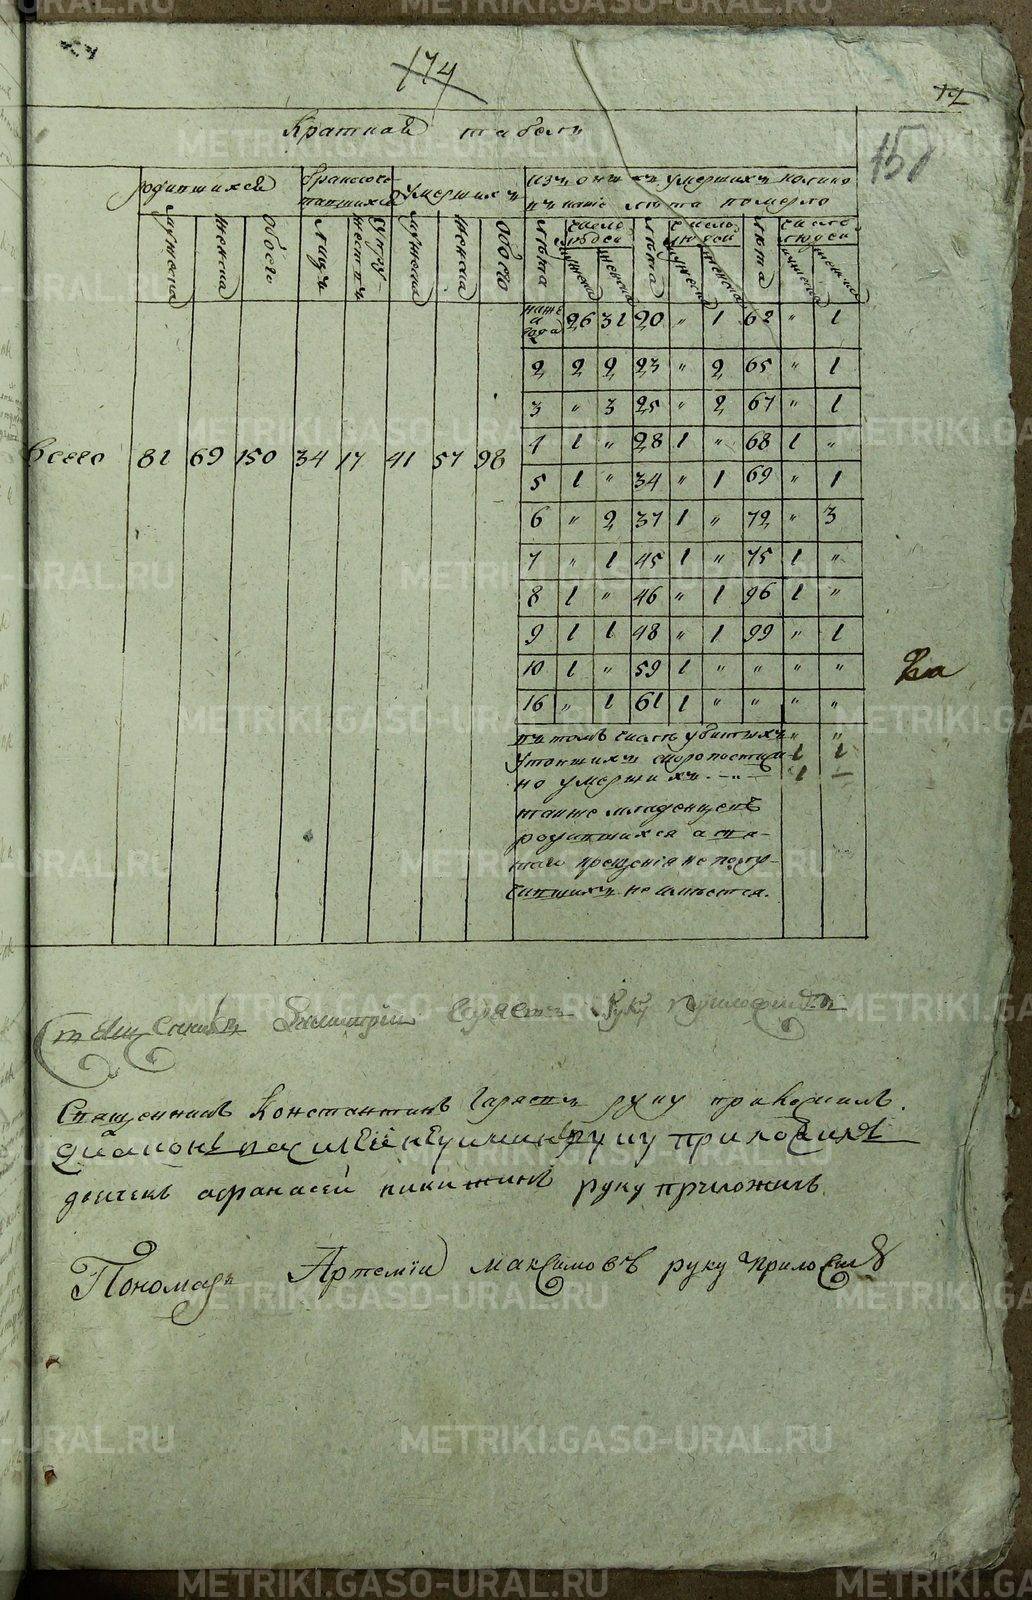 174
12
150
Краткой табель
родившихся
бракосочетавшихся
умершихъ
изъ онихъ умершихъ колико
въ какие лѣта померло
мужеска
женска
обоего
лицъ
супружествъ
мужеска
женска
обоего
лѣта
число людей
мужеска
женска
лѣта
число людей
мужеска
женска
лѣта
число людей
мужеска
женска
Всего 81 69 150 34 17 41 57 98
года 26 31 20 " 1 62 " 1
2 2 2 23 " 2 65 " 1
3 " 3 25 " 2 67 " 1
4 1 " 28 1 " 68 1 "
5 1 " 34 " 1 69 " 1
6 " 2 37 1 " 72 " 3
7 " 1 45 1 " 75 1 "
8 1 " 46 " 1 96 1 "
9 1 1 48 " 1 99 " 1
10 1 " 59 1 " " " "
16 " 1 61 1 " " " "
въ томъ числѣ убитыхъ " "
утопшихъ скоропостиж- 1 1
но умершихъ 1 —
также младенцевъ
родившихся а свя-
таго крещенія не полу-
чившихъ не имѣется.
Священникъ Димитрій руку приложилъ
Священникъ Константинъ руку приложилъ.
диаконъ руку приложилъ
дьячекъ афанасей никитинъ руку приложилъ
Пономарь Артемій максимовъ руку приложилъ
METRIKI.GASO-URAL.RU